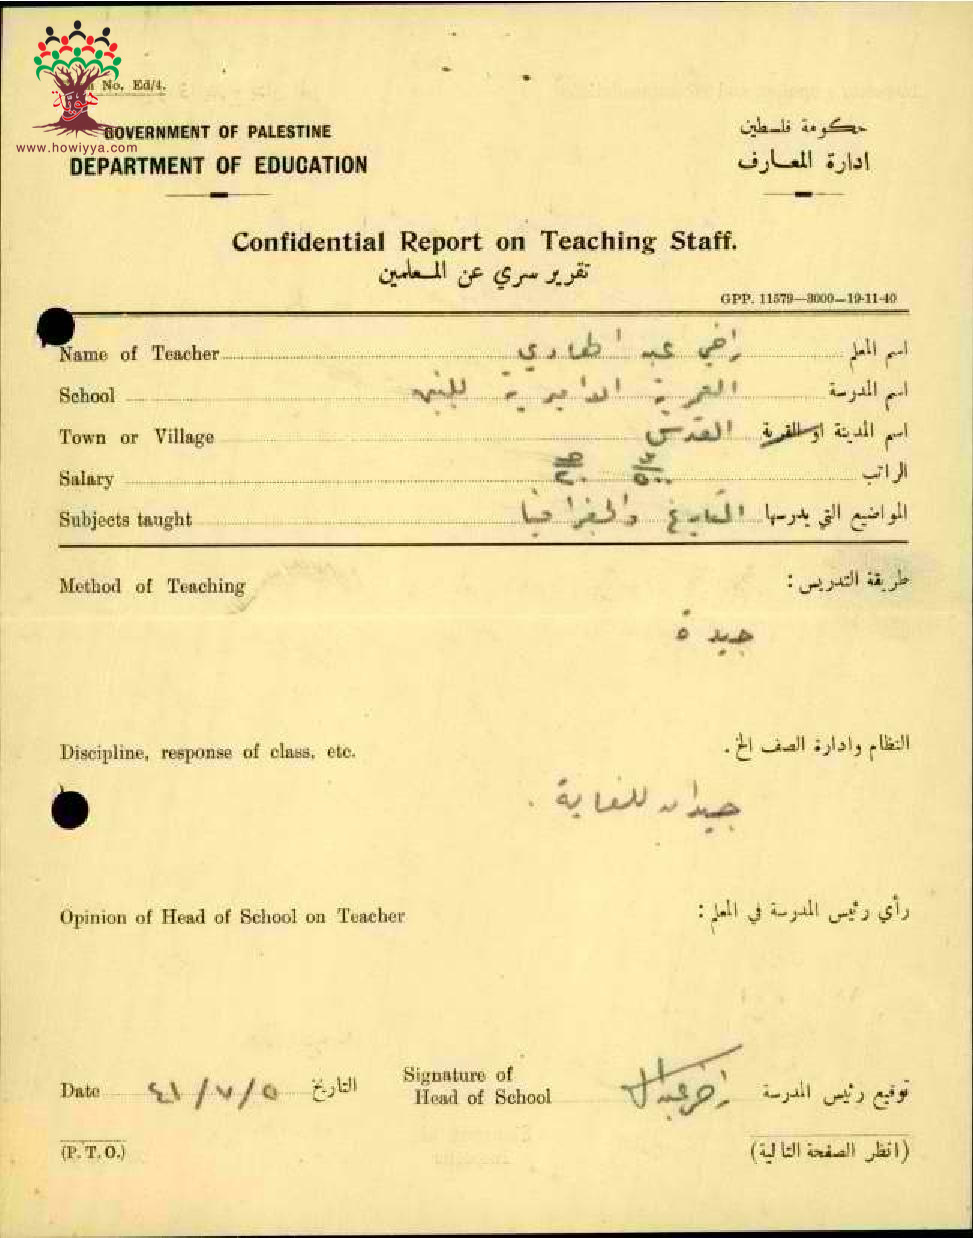 No. Ed/4.
www.howiyya.com
GOVERNMENT OF PALESTINE حكومة فلسطين
DEPARTMENT OF EDUCATION ادارة المعارف
Confidential Report on Teaching Staff.
تقرير سري عن المعلمين
GPP. 11579—3000—19-11-40
Name of Teacher راضي عبد الهادي اسم المعلم
School العمرية الاميرية للبنين اسم المدرسة
Town or Village القدس اسم المدينة او القرية
Salary الراتب
Subjects taught التاريخ والجغرافيا المواضيع التي يدرسها
Method of Teaching طريقة التدريس :
جيدة
Discipline, response of class, etc. النظام وادارة الصف الخ .
جيدان للغاية .
Opinion of Head of School on Teacher رأي رئيس المدرسة في المعلم :
Date ٤١/٧/٥ التاريخ Signature of Head of School توقيع رئيس المدرسة
(P. T. O.) (انظر الصفحة التالية)